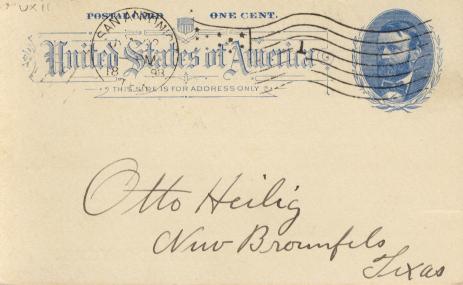 UX11
POSTAL CARD ONE CENT.
United States of America
THIS SIDE IS FOR ADDRESS ONLY
SAN ANTONIO
18 98
1
Otto Heilig
New Brounfels
Texas